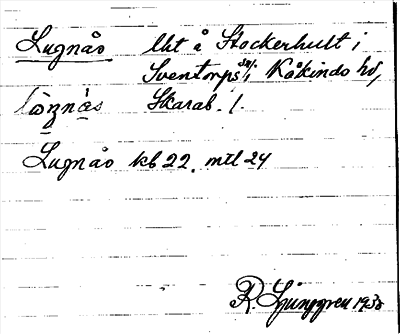 Lugnås lht å Stockerhult i
Sventorps sn, Kåkinds hd,
Skarab. l.
Lugnås kb 22, mtl 24
R Ljunggren 1930